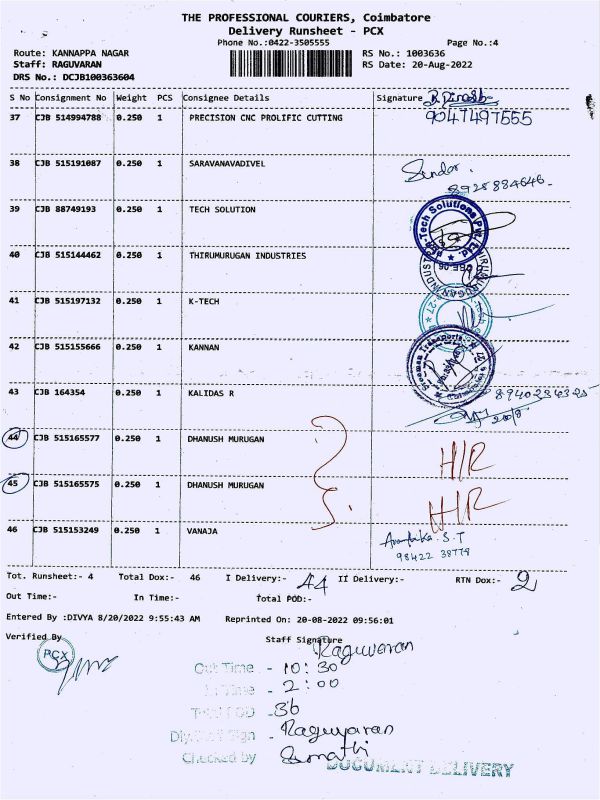 THE PROFESSIONAL COURIERS, Coimbatore
Delivery Runsheet - PCX
Phone No.:0422-3505555 Page No.:4
Route: KANNAPPA NAGAR RS No.: 1003636
Staff: RAGUVARAN RS Date: 20-Aug-2022
DRS No.: DCJB100363604
S No Consignment No Weight PCS Consignee Details Signature
37 CJB 514994788 0.250 1 PRECISION CNC PROLIFIC CUTTING 9047497555
38 CJB 515191087 0.250 1 SARAVANAVADIVEL Sundar
8925884646
39 CJB 88749193 0.250 1 TECH SOLUTION
40 CJB 515144462 0.250 1 THIRUMURUGAN INDUSTRIES
41 CJB 515197132 0.250 1 K-TECH
42 CJB 515155666 0.250 1 KANNAN
43 CJB 164354 0.250 1 KALIDAS R
44 CJB 515165577 0.250 1 DHANUSH MURUGAN H/R
45 CJB 515165575 0.250 1 DHANUSH MURUGAN H/R
46 CJB 515153249 0.250 1 VANAJA S.T
98422 38778
Tot. Runsheet:- 4 Total Dox:- 46 I Delivery:- 44 II Delivery:- RTN Dox:- 2
Out Time:- In Time:- Total POD:-
Entered By :DIVYA 8/20/2022 9:55:43 AM Reprinted On: 20-08-2022 09:56:01
Verified By Staff Signature
PCX Raguvaran
Out Time - 10:30
In Time - 2:00
POD - 36
Sign - Raguvaran
Checked by Sumathi
DOCUMENT DELIVERY